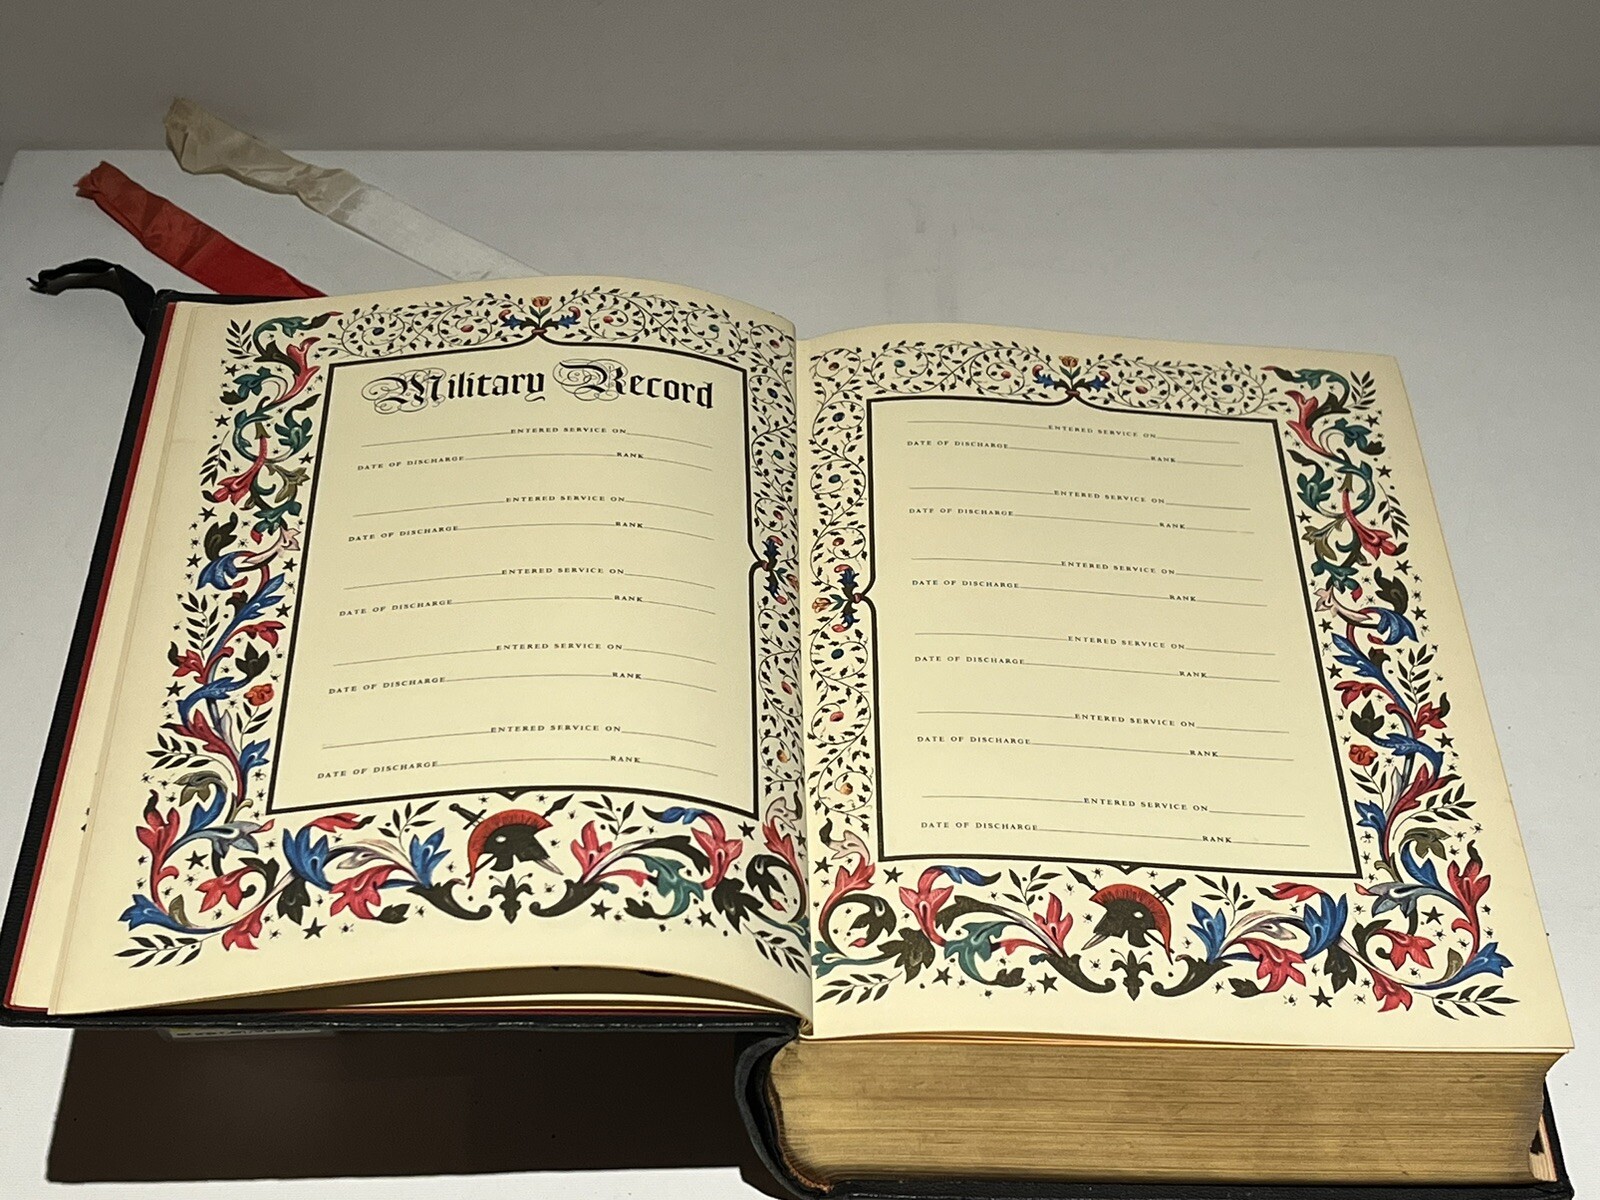 Military Record
ENTERED SERVICE ON
DATE OF DISCHARGE RANK
ENTERED SERVICE ON
DATE OF DISCHARGE RANK
ENTERED SERVICE ON
DATE OF DISCHARGE RANK
ENTERED SERVICE ON
DATE OF DISCHARGE RANK
ENTERED SERVICE ON
DATE OF DISCHARGE RANK
ENTERED SERVICE ON
DATE OF DISCHARGE RANK
ENTERED SERVICE ON
DATE OF DISCHARGE RANK
ENTERED SERVICE ON
DATE OF DISCHARGE RANK
ENTERED SERVICE ON
DATE OF DISCHARGE RANK
ENTERED SERVICE ON
DATE OF DISCHARGE RANK
ENTERED SERVICE ON
DATE OF DISCHARGE RANK